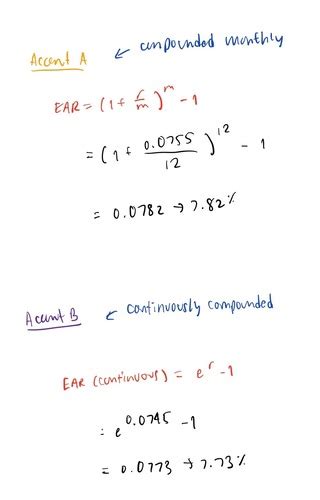 Account A ← compounded monthly
EAR = (1 + r/m)^m - 1
= (1 + 0.0755/12)^12 - 1
= 0.0782 → 7.82%
Account B ← continuously compounded
EAR (continuous) = e^r - 1
= e^0.0745 - 1
= 0.0773 → 7.73%